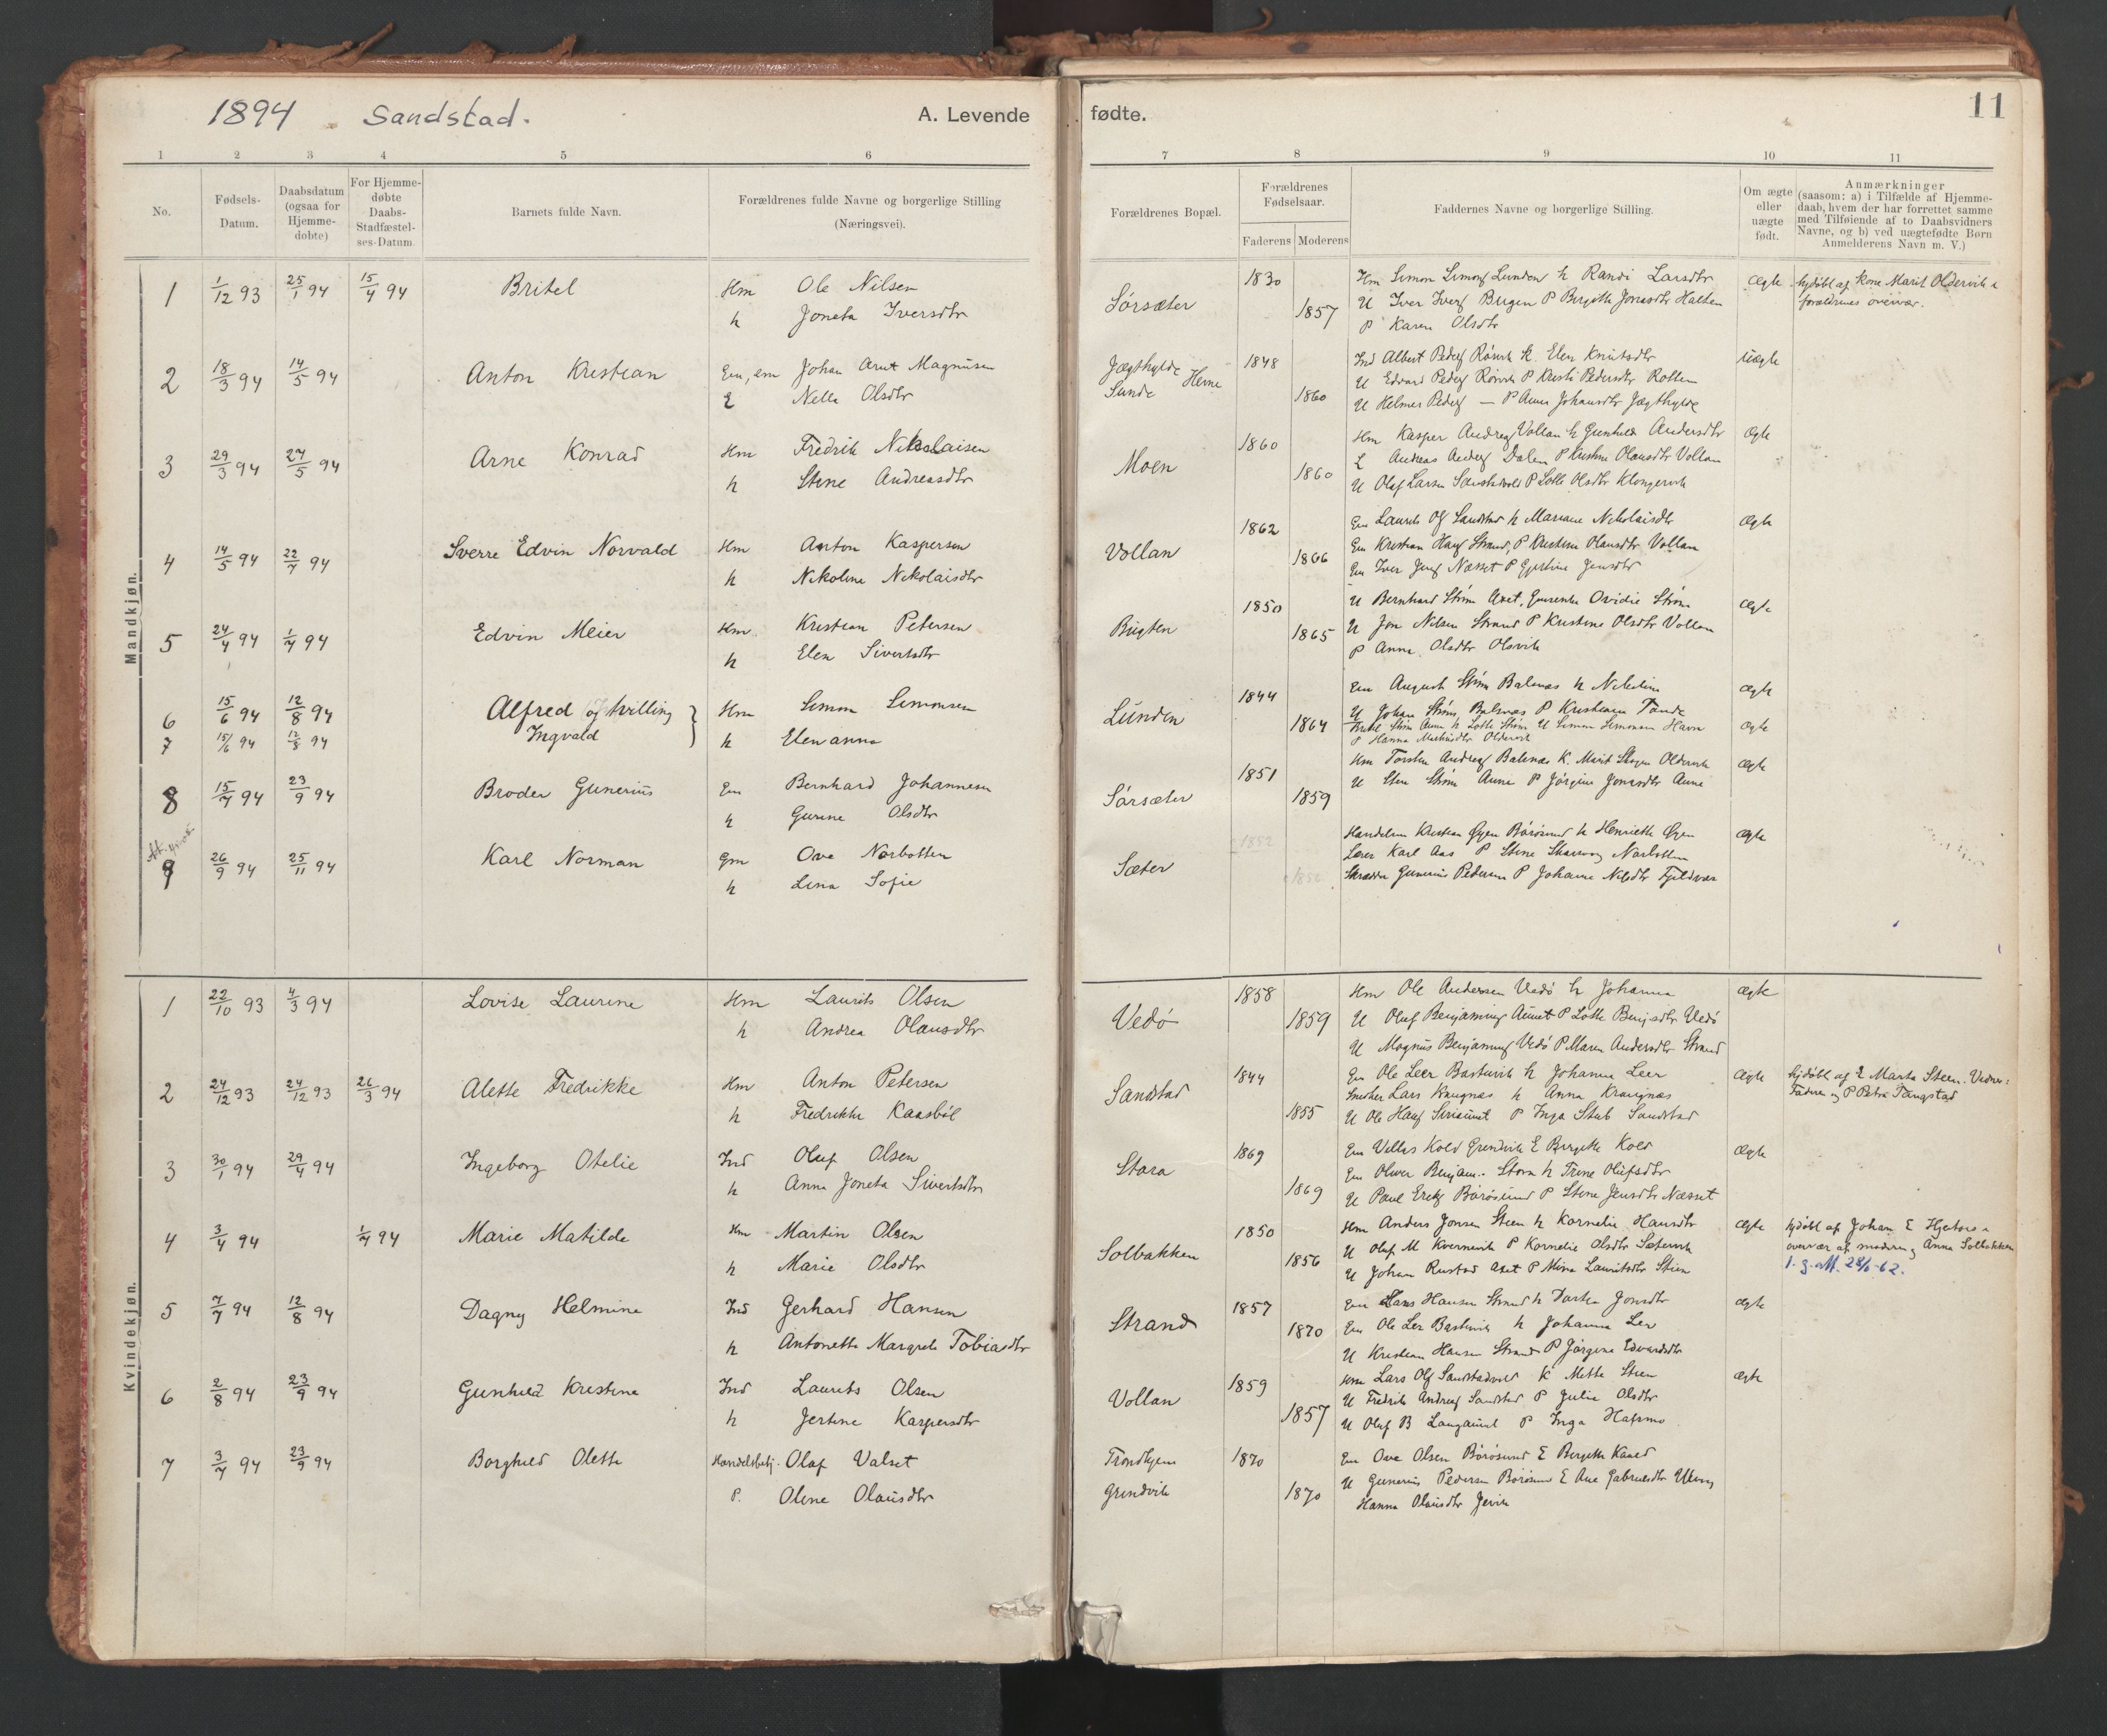 1894 Sandstad. A. Levende fødte. 11
1 2 3 4 5 6 7 8 9 10 11
No.
Fødsels-Datum.
Daabsdatum (ogsaa for Hjemme-døbte)
For Hjemme-døbte Daabs-Stadfæstel-ses-Datum
Barnets fulde Navn.
Forældrenes fulde Navne og borgerlige Stilling (Næringsvei).
Forældrenes Bopæl.
Forældrenes Fødselsaar.
Faderens Moderens
Faddernes Navne og borgerlige Stilling.
Om ægte eller uægte født.
Anmærkninger (saasom: a) i Tilfælde af Hjemme-daab, hvem der har forrettet samme med Tilføiende af to Daabsvidners Navne, og b) ved uægtefødte Børn Anmelderens Navn m. V.)
Mandkjøn.
1 1/12 93 25/1 94 15/4 94 Britel Hm Ole Nilsen
h Joneta Iversdtr
Sørsæter 1830 1857
Hm Simon Simons Lunden h Randi Larsdtr
U Iver Ivers Bugen P Birgitte Jonasdtr Halten
P Karen Olsdtr
Ægte
hjdøbt af Kone Marit Oldervik i
forældrenes overvær.
2 18/3 94 14/5 94 Anton Kristian Em, em Johan Arnt Magnusen
E Nella Olsdtr
Jægthylde Hevne
Sunde
1848 1860
Ind Albert Peders Rørvik h. Elen Knutsdtr
U Edvard Peders Rørvik P Kristi Pedersdtr Rottem
U Helmer Peders — P Anna Johansdtr Jægthylde
Uægte
3 29/3 94 24/5 94 Arne Konrad Hm Fredrik Nikolaisen
h Stine Andreasdtr
Moen 1860 1860
Hm Kasper Andreas Vollan h Gunhild Andersdtr
Andreas Anders Dalen P Kristine Olausdtr Vollan
U Olaf Larsen Sandstadvold P Lotte Olsdtr Klongervik
Ægte
4 14/5 94 22/7 94 Sverre Edvin Norvald Hm Anton Kaspersen
h Nikoline Nikolaisdtr
Vollan 1862 1866
Em Laurits Ols Sandstad h Mariane Nikolaisdtr
Em Kristian Hans Strand, P Kristine Olausdtr Vollan
Em Iver Jens Næsset P Gjertine Jensdtr
Ægte
5 24/4 94 1/7 94 Edvin Meier Hm. Kristian Petersen
h Elen Sivertsdtr
Bugten 1850 1865
U Bernhard Strøm Axet, Ovidie Strøm
U Jon Nilsen Strand P Kristine Olsdtr Vollan
P Anna Olsdtr Olsvik
Ægte
6 15/6 94 12/8 94 Alfred og tvilling Hm Simon Simonsen
7 15/6 94 12/8 94 Ingvald h Elenanna
Lunden 1844 1864
Em August Strøm Balsnes h Nikoline
U Johan Strøm, Balsnæs P Kristiane Tande
Strøm Aune h Lotte Strøm U Simon Simonsen Havn
P Hanna Mathisdtr Oldervik
Ægte
Ægte
8 15/7 94 23/9 94 Broder Gunerius Em Bernhard Johannesen
h Gurine Olsdtr
Sørsæter 1851 1859
Hm Torsten Andreas Balsnes K. Marit Skogen Oldervik
U Sten Strøm Aune P Jørgine Jonasdtr Aune
Ægte
9 26/9 94 25/11 94 Karl Norman Gm Ove Norbotten
h Lina Sofie
Sæter 1852 1852
Handelsm Kristian Øyen Børøsund h Henriette Øyen
Lærer Karl Aas P Stine Norbotten
Skrædder Gunerius Pedersen P Johanne Nilsdtr Fjeldvær
Ægte
Kvindekjøn.
1 22/10 93 4/3 94 Lovise Laurine Hm Laurits Olsen
h Andrea Olausdtr
Vedø 1858 1859
Hm Ole Andersen Vedø h Johanna
U Oluf Benjamins Aunet P Lotte Benjsdtr Vedø
U Magnus Benjamins Vedø P Maren Andersdtr Strand
Ægte
2 24/12 93 24/12 93 26/3 94 Alette Fredrikke Hm Anton Petersen
h Fredrikke Kaasbøl
Sandstad 1844 1855
Em Ole Leer Bastuvik h Johanna Leer
Snedker Lars Krangnæs h Anna Krangnæs
U Ole Hans P Inga Stub Sandstad
Ægte
hjdøbt af E Marta Steen. Vidner:
Faderen og P Petra Tangstad
3 30/1 94 29/4 94 Ingeborg Otelie Ind Oluf Olsen
h Anna Joneta Sivertsdtr
Stora 1869 1869
Em Vellas Kold Grindvik E Birgitte Kold
Em Oliver Benjam. Stora h Trine Olufsdtr
U Paul Eriks Børøsund P Stine Jensdtr Næsset
Ægte
4 3/4 94 1/7 94 Marie Matilde Hm Martin Olsen
h Marie Olsdtr
Solbakken 1850 1856
Hm Anders Jonsen Steen h Kornelie Hansdtr
U Oluf M Kvernevik P Kornelie Olsdtr Sætervik
U Johan Rustad Axet P Mina Lauritsdtr Steen
Ægte
hjdøbt af Johan E Hjertaas i
overvær af moderen og Anna Solbakken
1. g. att. 28/6-62.
5 7/7 94 12/8 94 Dagny Helmine Ind Gerhard Hansen
h Antonette Margrete Tobiasdtr
Strand 1857 1870
Em Lars Hansen Strand h Dortea Jonsdtr
Em Ole Ler Bastuvik h Johanna Ler
U Kristian Hansen Strand P Jørgine Edvardsdtr
Ægte
6 2/8 94 23/9 94 Gunhild Kristine Ind Laurits Olsen
h Jertine Kaspersdtr
Vollan 1859 1857
Hm Lars Ols Sandstadvold K Mette Steen
U Fredrik Andreas Sandstad P Julie Olsdtr
U Oluf B Langaunet P Inga Hafsmo
Ægte
7 3/7 94 23/9 94 Borghild Olette Handelsbetj. Olaf Valset
P. Oline Olausdtr
Trondhjem
Grindvik
1870 1870
Em Ove Olsen Børøsund E Birgitte Kaald
U Gunerius Pedersen Børøsund E Ane Gabrielsdtr
Hanna Olausdtr Jervik